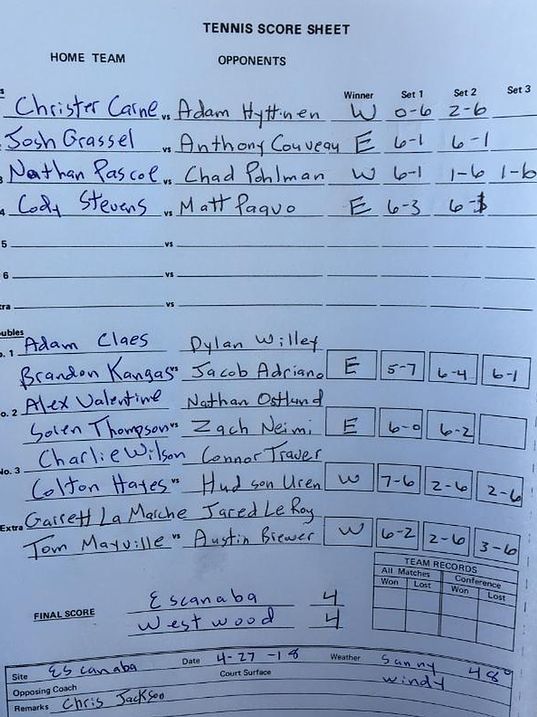 TENNIS SCORE SHEET
HOME TEAM OPPONENTS
Winner Set 1 Set 2 Set 3
Christer Carne vs Adam Hyttinen W 0-6 2-6
Josh Grassel vs Anthony Couveau E 6-1 6-1
3 Nathan Pascoe vs Chad Pohlman W 6-1 1-6 1-6
4 Cody Stevens vs Matt Paquo E 6-3 6-
5 vs
6 vs
tra vs
oubles
o. 1 Adam Claes Dylan Willey
Brandon Kangas vs Jacob Adriano E 5-7 6-4 6-1
o. 2 Alex Valentine Nathan Ostlund
Soren Thompson vs Zach Neimi E 6-0 6-2
No. 3 Charlie Wilson Connor Traver
Colton Hayes vs Hudson Uren W 7-6 2-6 2-6
Extra Garrett La Marche Jared Le Roy
Tom Mayville vs Austin Brewer W 6-2 2-6 3-6
TEAM RECORDS
All Matches Conference
Won Lost Won Lost
FINAL SCORE Escanaba 4
Westwood 4
Site Escanaba Date 4-27-18 Weather Sunny 48°
windy
Opposing Coach Court Surface
Remarks Chris Jackson